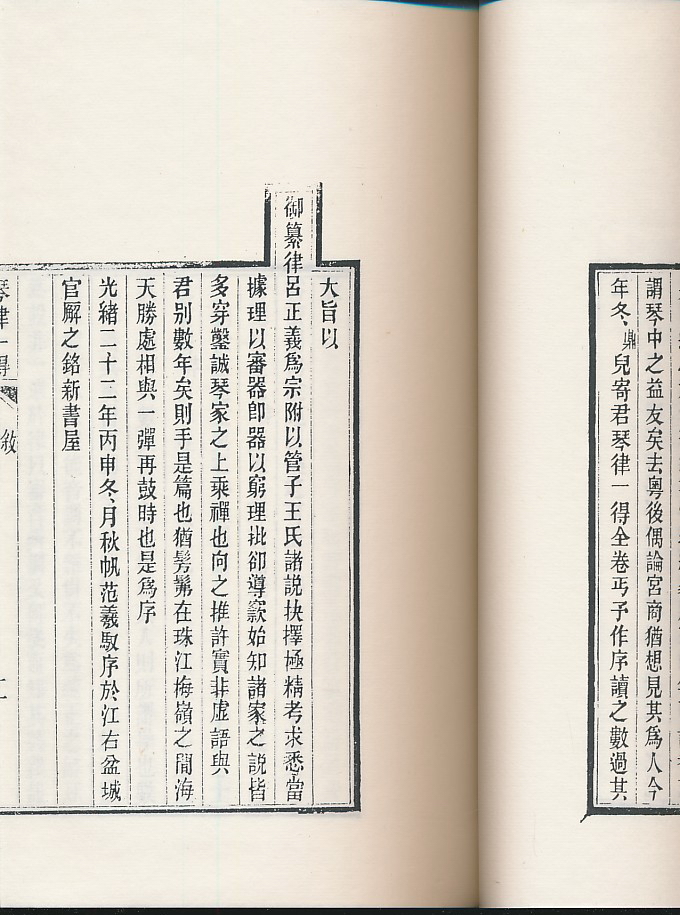 謂琴中之益友矣去粵後偶論宮商猶想見其為人今
年冬鼎兒寄君琴律一得全卷丐予作序讀之數過其
大旨以
御纂律呂正義為宗附以管子王氏諸說抉擇極精考求悉當
據理以審器卽器以窮理批卻導窾始知諸家之說皆
多穿鑿誠琴家之上乘禪也向之推許實非虛語與
君別數年矣則手是篇也猶髣髴在珠江梅嶺之間海
天勝處相與一彈再鼓時也是為序
光緒二十二年丙申冬月秋帆范羲馭序於江右盆城
官廨之銘新書屋
琴律一得 敘 二